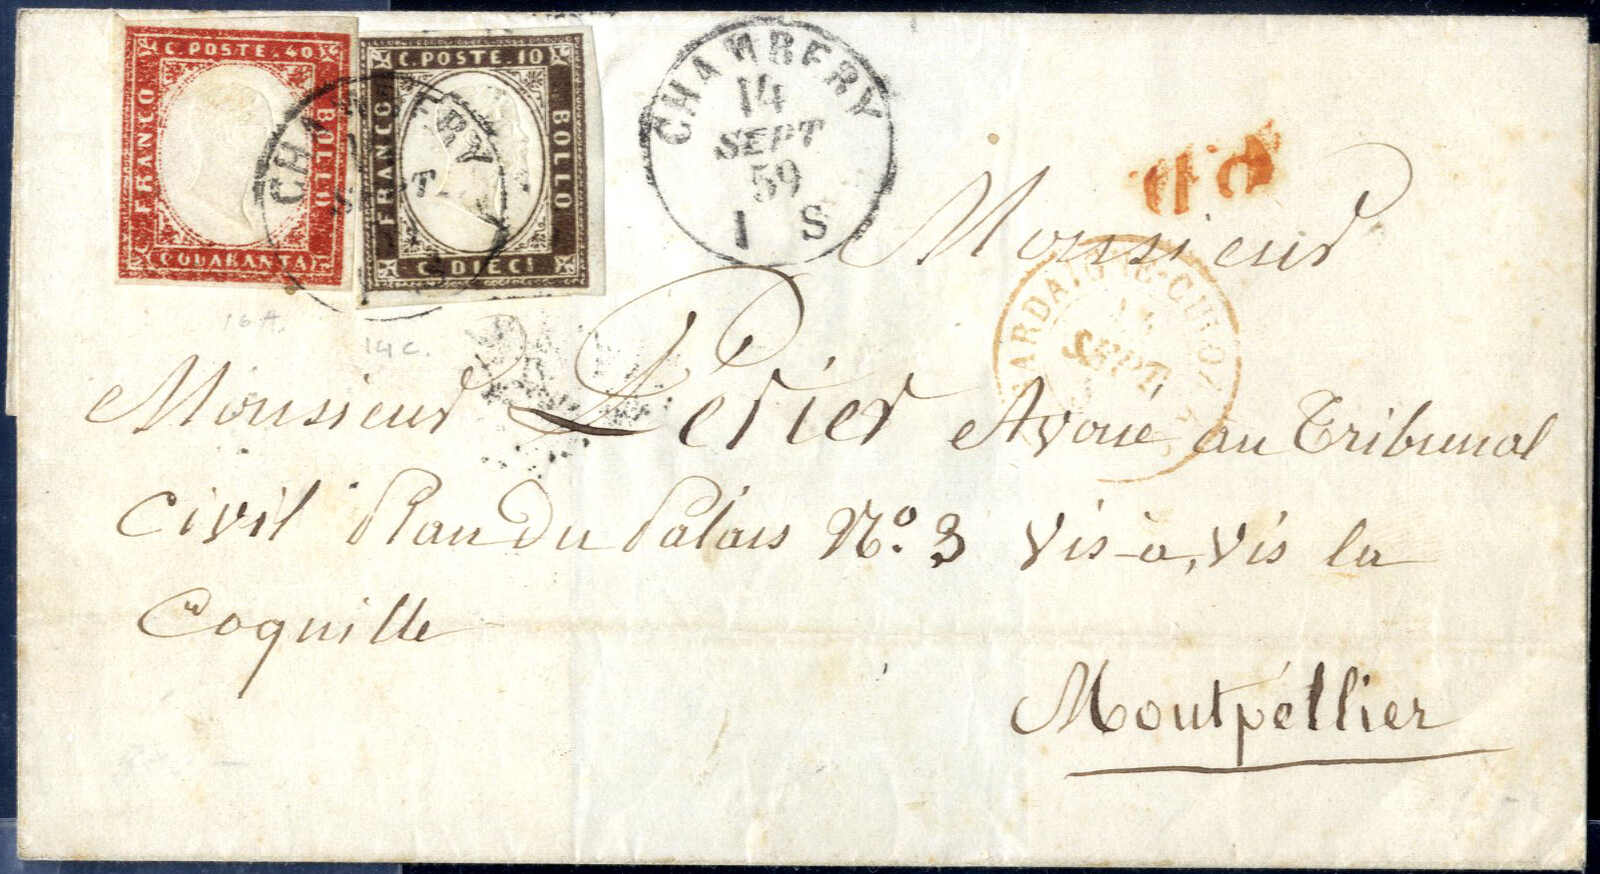 C. POSTE. 40
FRANCO
BOLLO
C. QUARANTA
C. POSTE. 10
FRANCO
BOLLO
C. DIECI
CHAMBERY
SEPT
CHAMBERY
14
SEPT
59
1 S
P.D.
16A.
14c.
SARDAIGNE-CULOZ
14
SEPT
Monsieur
Monsieur Perier Avoué au Tribunal
Civil Plan du Palais No. 3 vis-à-vis la
Coquille
Montpéllier